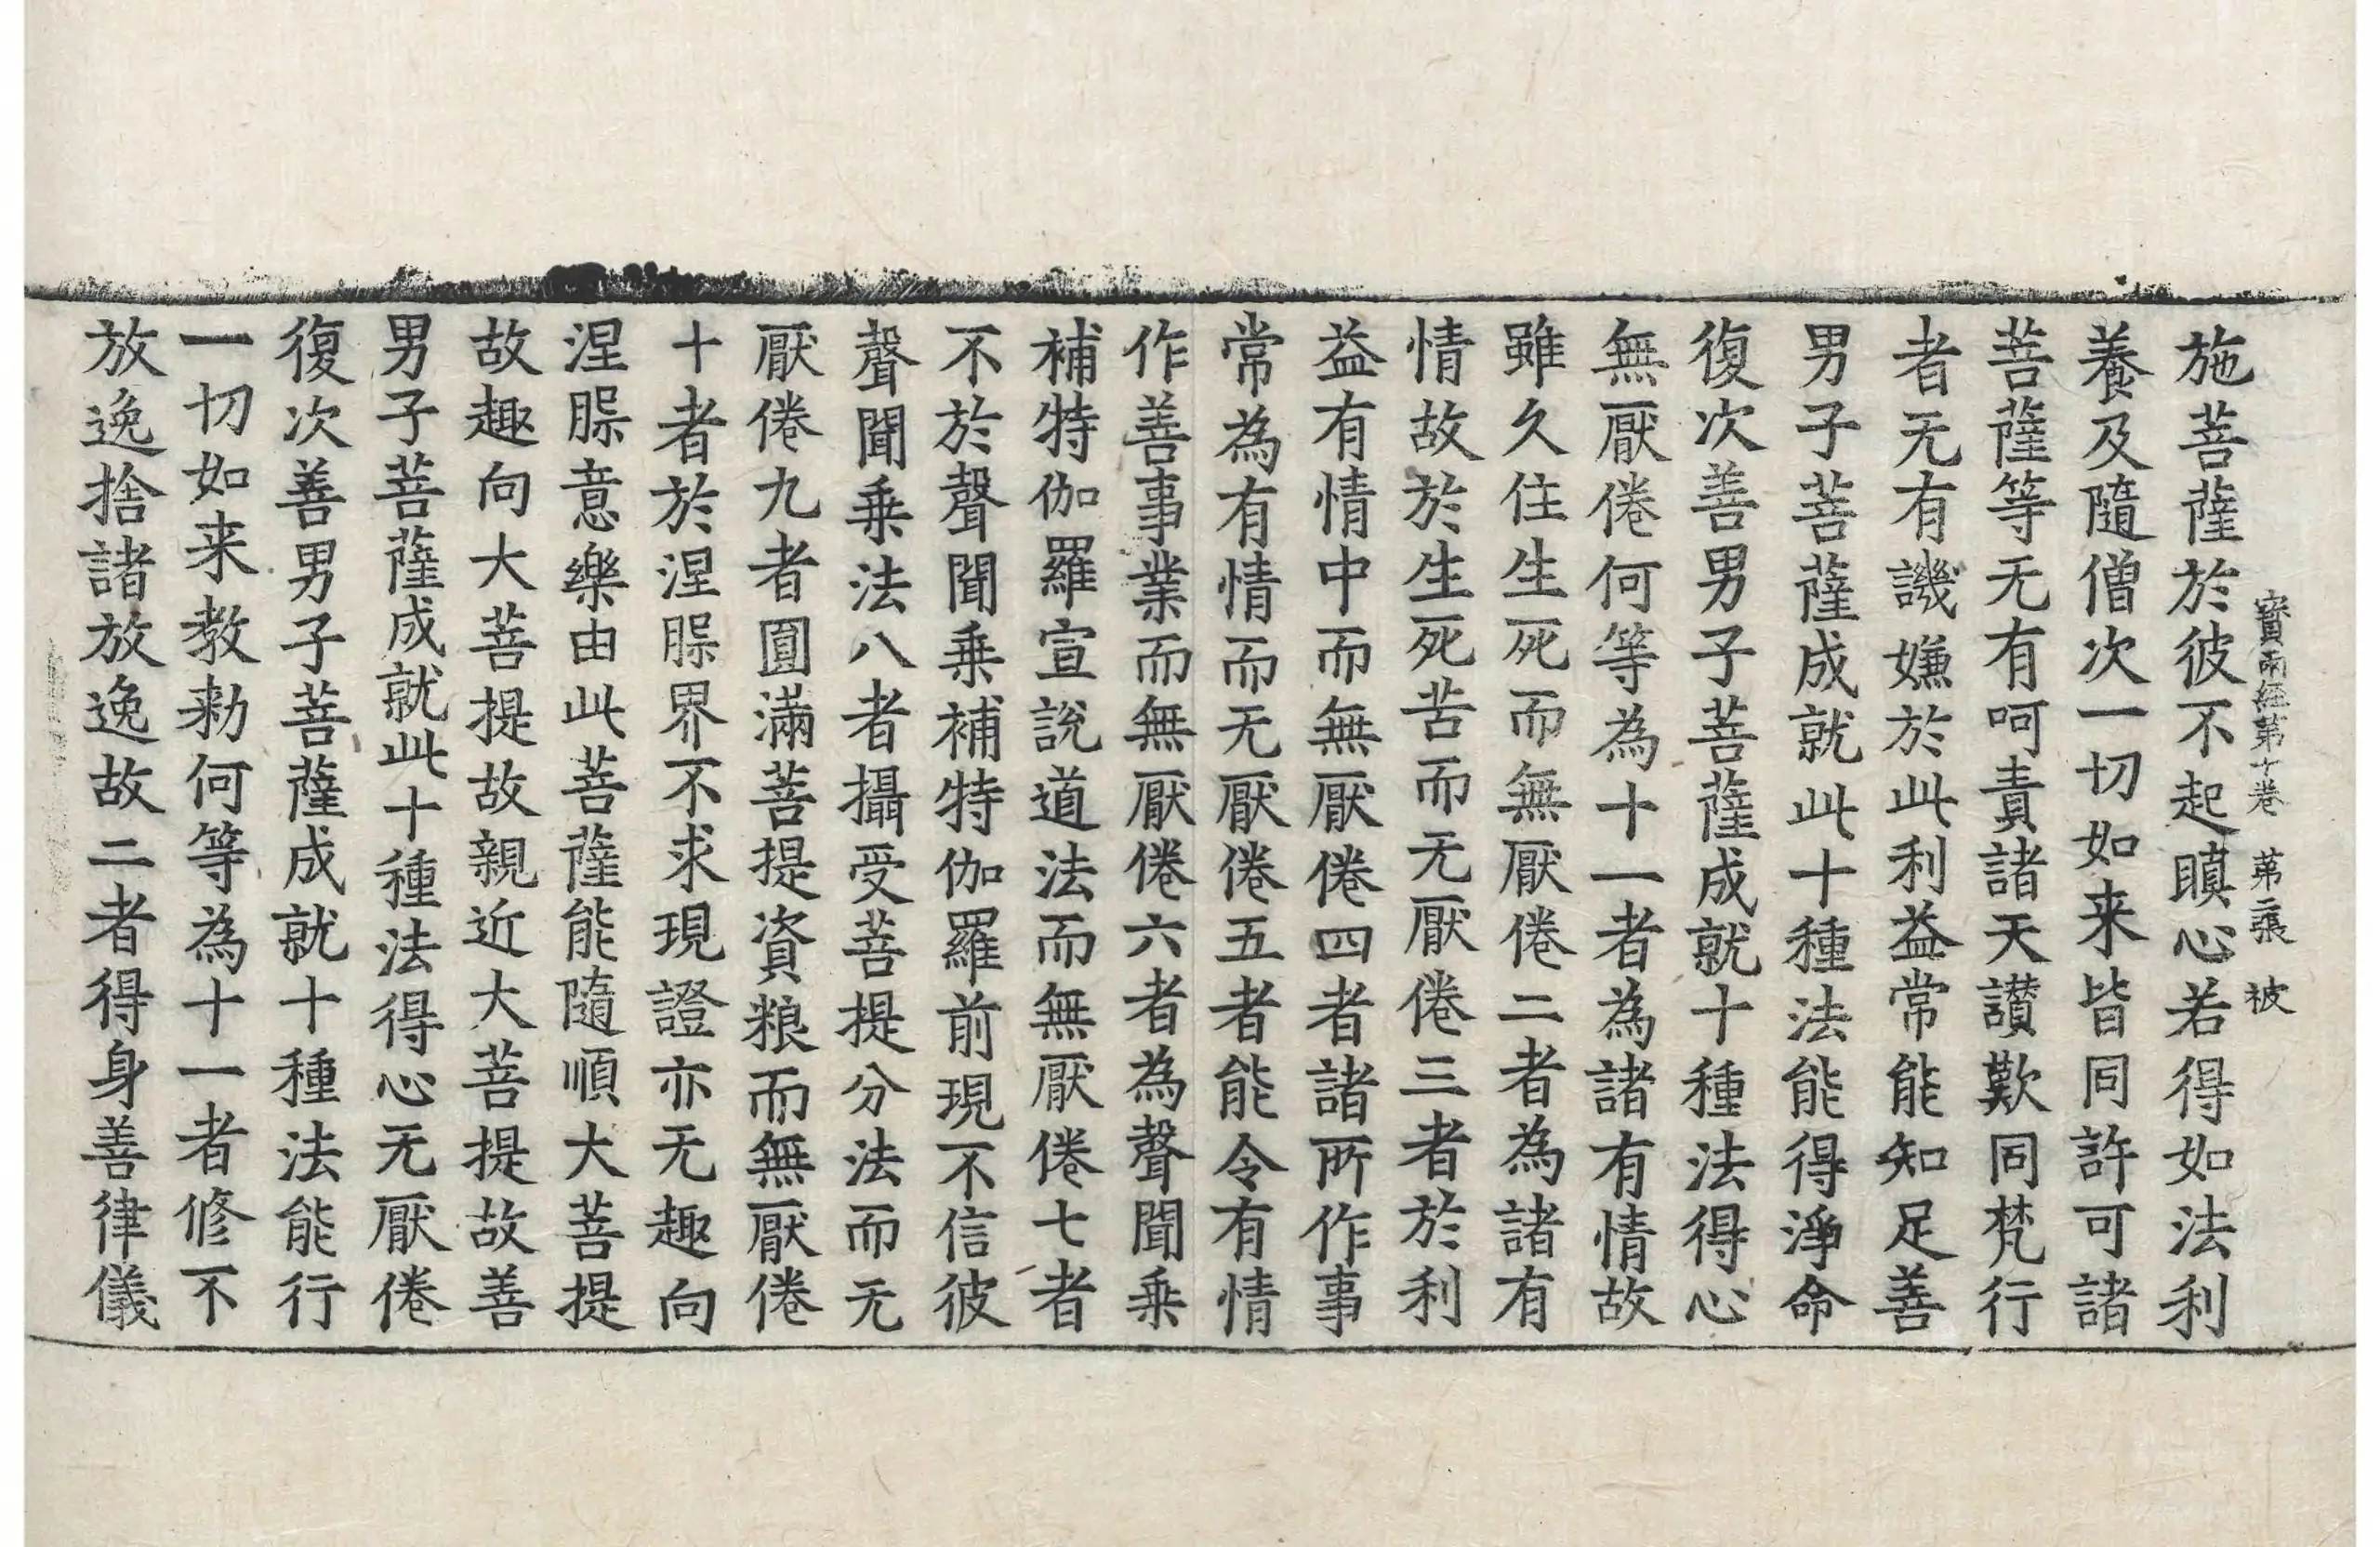 寳雨經第十卷 苐二張 被
施菩薩於彼不起瞋心若得如法利
養及隨僧次一切如来皆同許可諸
菩薩等无有呵責諸天讃歎同梵行
者无有譏嫌於此利益常能知足善
男子菩薩成就此十種法能得淨命
復次善男子菩薩成就十種法得心
無厭倦何等為十一者為諸有情故
雖久住生死而無厭倦二者為諸有
情故於生死苦而无厭倦三者於利
益有情中而無厭倦四者諸所作事
常為有情而无厭倦五者能令有情
作善事業而無厭倦六者為聲聞乗
補特伽羅宣說道法而無厭倦七者
不於聲聞乗補特伽羅前現不信彼
聲聞乗法八者攝受菩提分法而无
厭倦九者圓滿菩提資粮而無厭倦
十者於涅䐗界不求現證亦无趣向
涅䐗意樂由此菩薩能隨順大菩提
故趣向大菩提故親近大菩提故善
男子菩薩成就此十種法得心无厭倦
復次善男子菩薩成就十種法能行
一切如来教勑何等為十一者修不
放逸捨諸放逸故二者得身善律儀